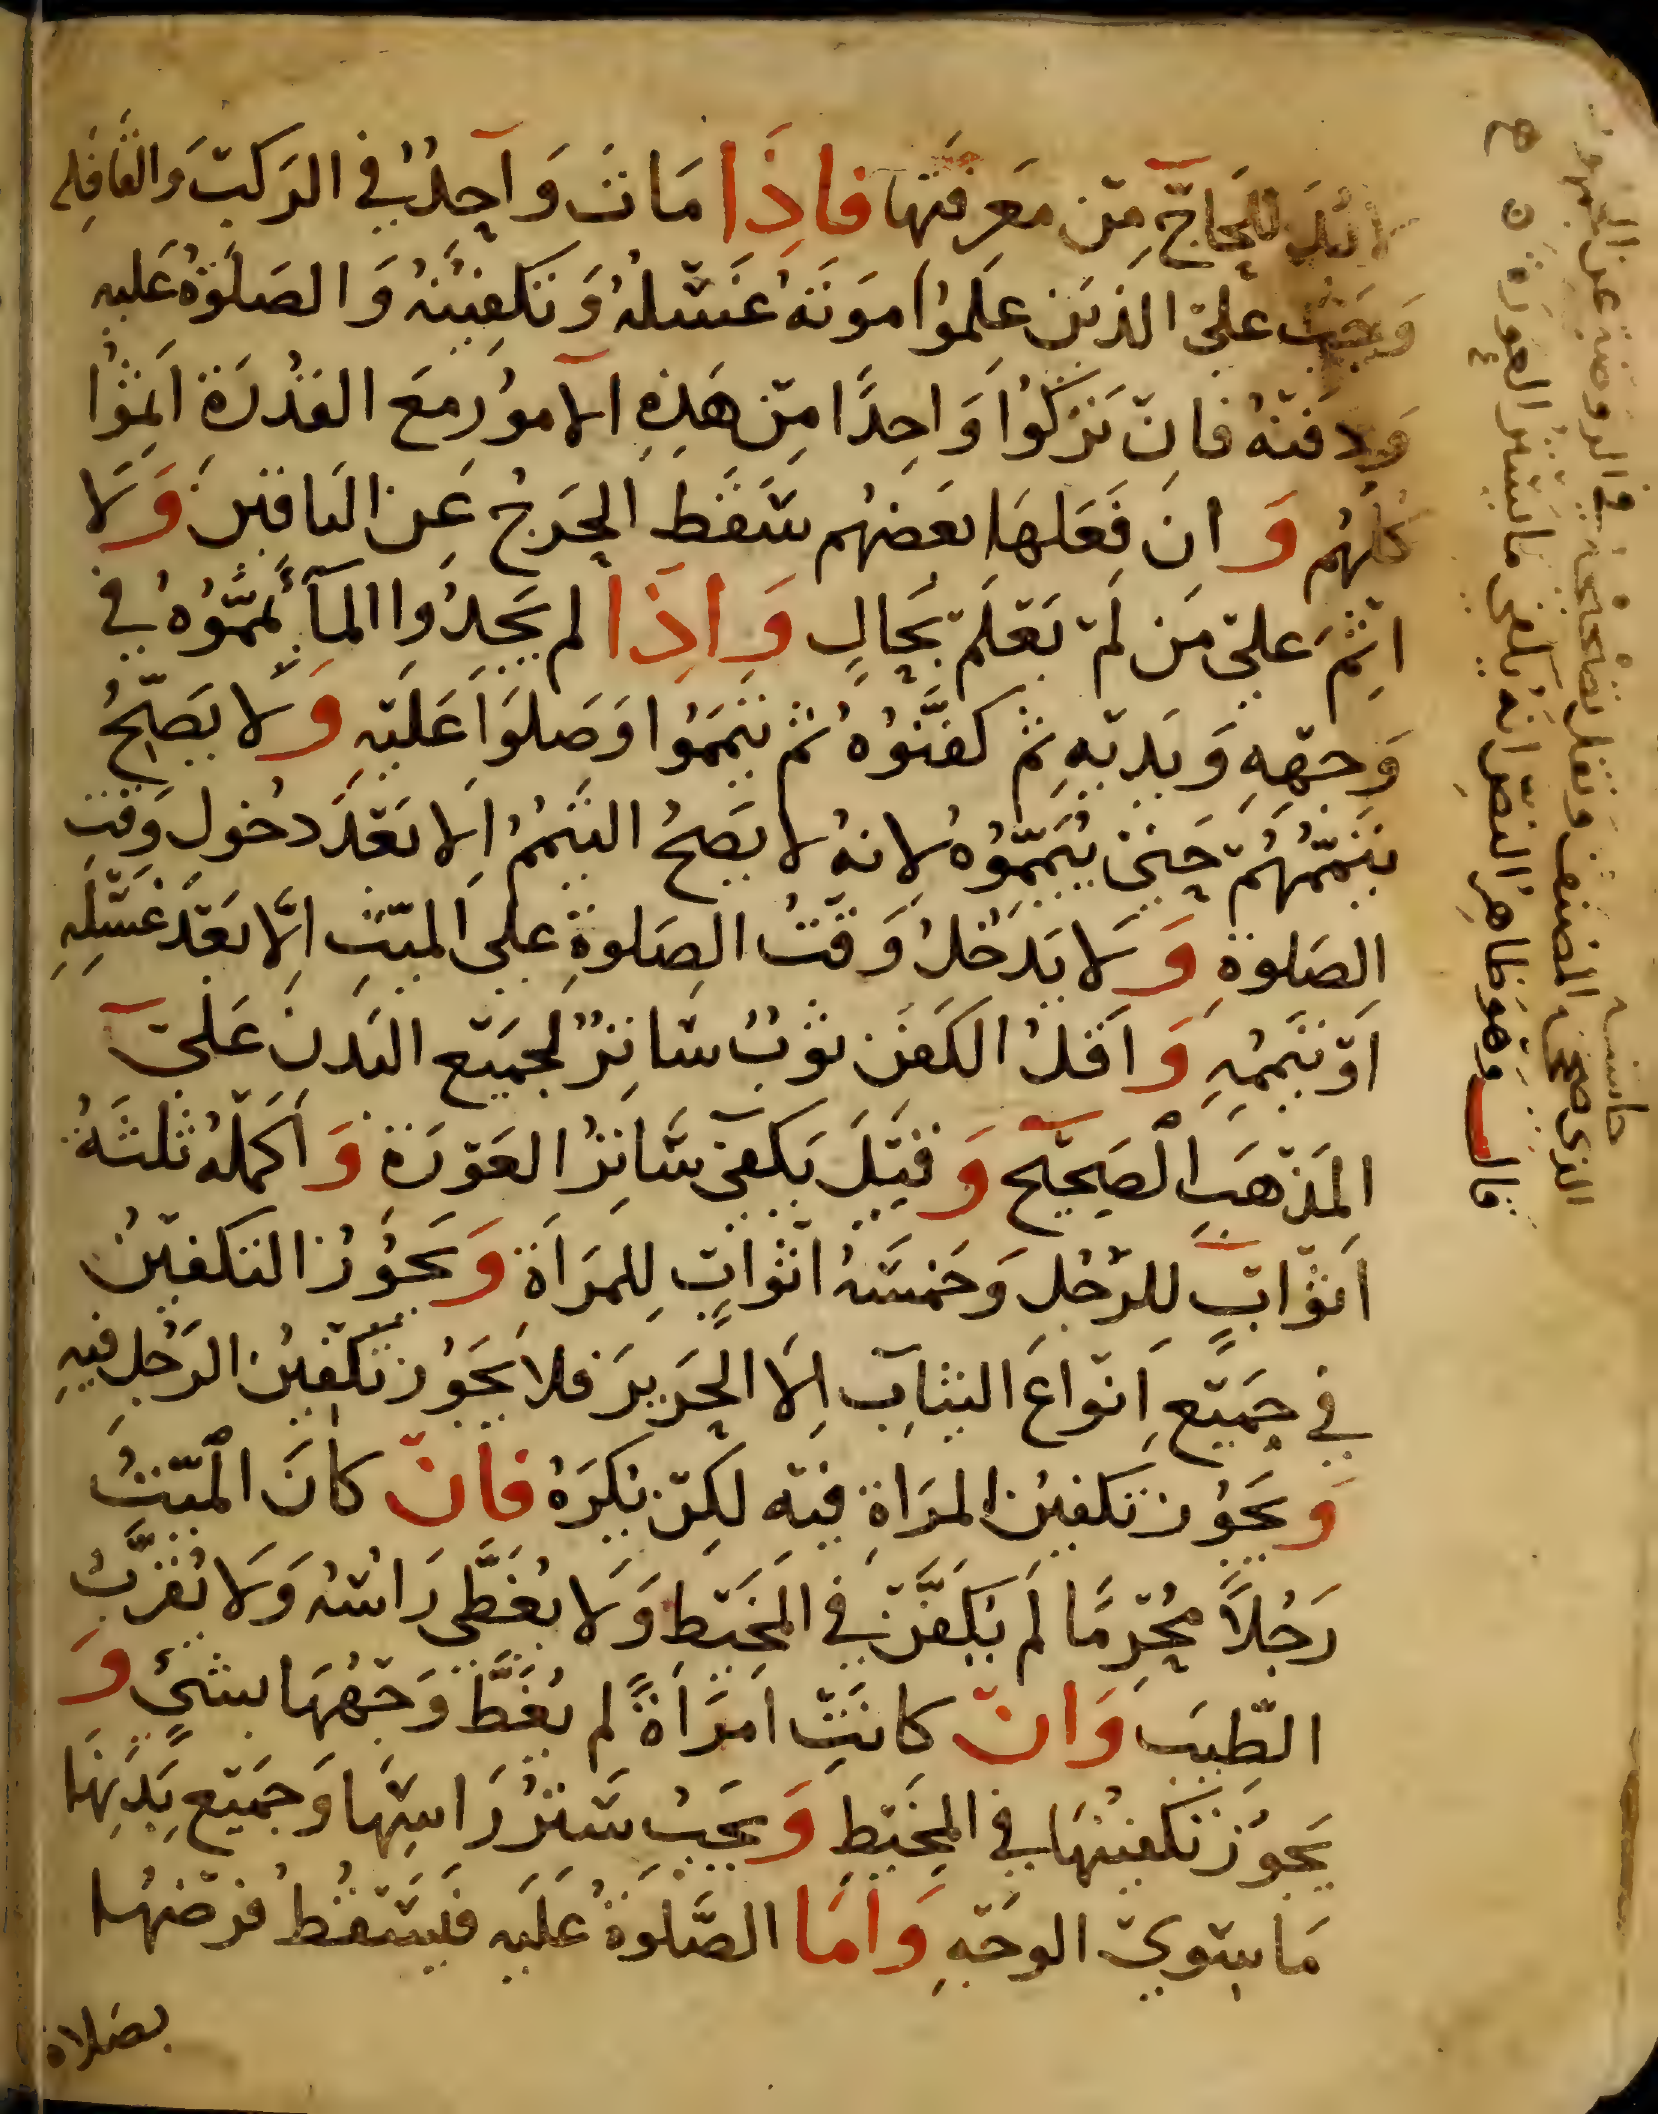 لابُدَّ للحَاجِّ مِن مَعرِفَتِهَا فَاذَا مَاتَ وَاحِدٌ في الرَكبْ وَالقَافِلَه
وَجَبَ عَليْ الذينَ عَلموُا مَوتَهُ غَسْلهُ وَتَكفِينُهُ وَالصَلَوةُ عَليه
وَدَفنهُ فانْ تَرَكوُا وَاحِدًا مِنْ هَذِهِ الاموُر مَعَ القُدْرَة اثِمُوْا
كُلهُم وَانْ فَعَلهَا بَعضهُم سَقَط الحَرَجُ عَن البَاقينَ وَلَا
اِثْمَ عَليْ مَن لَمْ يَعْلَمْ بحَالٍ وَاِذَا لم يَجِدُوا المَآءَ يمّمُوْهُ في
وَجْهِهِ وَيَدَيْهِ ثم كَفَّنُوْهُ ثم تيَمَّمُوا وَصَلوَا عَلَيْهِ وَلَا يَصِحُّ
تيَمّمُهُمْ حَتيٰ يُيَمّمُوْهُ لانهُ لا يَصحُ التيَمُمُ اِلا بَعْدَ دخُولِ وَقتِ
الصَلوةِ وَلَا يَدْخُلُ وَقْتُ الصَلوةِ عَلى الميّتِ اِلّا بَعْدَ غَسْلِهِ
اَوْ تيَمُمِهِ وَاقَلُ الكَفَنِ ثوْبٌ سَاترٌ لجميْعِ البَدَنَ عَليْ
المَذْهَبِ الْصَحِيْحِ وَقيْلَ يَكفيْ سَاترُ العَوْرَة وَاكمَلهُ ثلثَةُ
اَثْوَابٍ للرَّجُلِ وَخَمسَةُ اثْوَابٍ لِلمَرَاَة وَيَجُوْزُ التكفيْنُ
في جَميْعِ اَنوَاعَ الثيَابِ اِلاَ الحَرِيرَ فلا يَجَوُز تكفِيْنُ الرَجُلِ فيهِ
وَيجوُز تَكفينُ المرَاَةِ فيْهِ لكِنْ يُكرَهُ فانْ كانَ الْميّتُ
رَجُلاً مُحْرِمًا لم يُكَفَّنْ في المَخيْطِ وَلَا يُغَطّى رَاسُهُ وَلَا يُقرَّبُ
الطّيبَ وَانْ كانَتْ امْرَاَةً لم يُغَطَّ وَجْهُهَا بشَيْءٍ وَ
يَجوُز تَكفينُهَا في المخَيْطِ وَيجَبُ سَترُ رَاسِهَا وَجَميْعِ بَدَنِهَا
مَا سِوَي الوَجْهِ وَامَا الصَّلَوةُ عَلَيهِ فَيَسْقُطُ فرْضُهَا
بصَلاة
حاشيه
قال وَهوَ ظاهِر النصّ انهُ يكفي ما يستر العورة ن ه
الذي صححه المصنف ونقل تصحيحه في الروضة عن الجمهور